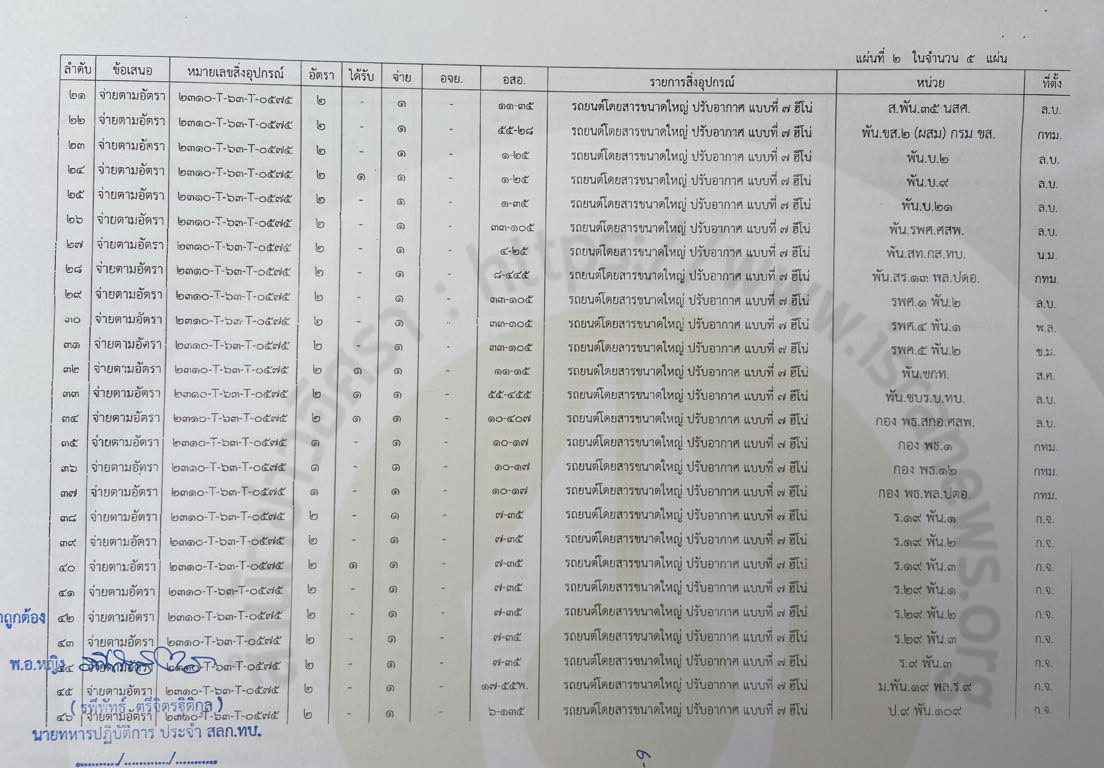 แผ่นที่ ๒ ในจำนวน ๕ แผ่น
ลำดับ ข้อเสนอ หมายเลขสิ่งอุปกรณ์ อัตรา ได้รับ จ่าย อจย. อสอ. รายการสิ่งอุปกรณ์ หน่วย ที่ตั้ง
๒๑ จ่ายตามอัตรา ๒๓๑๐-T-๖๓-T-๐๕๗๕ ๒ - ๑ - ๑๑-๓๕ รถยนต์โดยสารขนาดใหญ่ ปรับอากาศ แบบที่ ๗ ฮีโน่ ส.พัน.๓๕ นสศ. ล.บ.
๒๒ จ่ายตามอัตรา ๒๓๑๐-T-๖๓-T-๐๕๗๕ ๒ - ๑ - ๕๕-๒๘ รถยนต์โดยสารขนาดใหญ่ ปรับอากาศ แบบที่ ๗ ฮีโน่ พัน.ขส.๒ (ผสม) กรม ขส. กทม.
๒๓ จ่ายตามอัตรา ๒๓๑๐-T-๖๓-T-๐๕๗๕ ๒ - ๑ - ๑-๒๕ รถยนต์โดยสารขนาดใหญ่ ปรับอากาศ แบบที่ ๗ ฮีโน่ พัน.บ.๒ ล.บ.
๒๔ จ่ายตามอัตรา ๒๓๑๐-T-๖๓-T-๐๕๗๕ ๒ ๑ ๑ - ๑-๒๕ รถยนต์โดยสารขนาดใหญ่ ปรับอากาศ แบบที่ ๗ ฮีโน่ พัน.บ.๙ ล.บ.
๒๕ จ่ายตามอัตรา ๒๓๑๐-T-๖๓-T-๐๕๗๕ ๒ - ๑ - ๑-๓๕ รถยนต์โดยสารขนาดใหญ่ ปรับอากาศ แบบที่ ๗ ฮีโน่ พัน.บ.๒๑ ล.บ.
๒๖ จ่ายตามอัตรา ๒๓๑๐-T-๖๓-T-๐๕๗๕ ๒ - ๑ - ๓๓-๑๐๕ รถยนต์โดยสารขนาดใหญ่ ปรับอากาศ แบบที่ ๗ ฮีโน่ พัน.รพศ.ศสพ. ล.บ.
๒๗ จ่ายตามอัตรา ๒๓๑๐-T-๖๓-T-๐๕๗๕ ๒ - ๑ - ๔-๒๕ รถยนต์โดยสารขนาดใหญ่ ปรับอากาศ แบบที่ ๗ ฮีโน่ พัน.สท.กส.ทบ. น.ม.
๒๘ จ่ายตามอัตรา ๒๓๑๐-T-๖๓-T-๐๕๗๕ ๒ - ๑ - ๘-๔๔๕ รถยนต์โดยสารขนาดใหญ่ ปรับอากาศ แบบที่ ๗ ฮีโน่ พัน.สร.๑๓ พล.ปตอ. กทม.
๒๙ จ่ายตามอัตรา ๒๓๑๐-T-๖๓-T-๐๕๗๕ ๒ - ๑ - ๓๓-๑๐๕ รถยนต์โดยสารขนาดใหญ่ ปรับอากาศ แบบที่ ๗ ฮีโน่ รพศ.๑ พัน.๒ ล.บ.
๓๐ จ่ายตามอัตรา ๒๓๑๐-T-๖๓-T-๐๕๗๕ ๒ - ๑ - ๓๓-๑๐๕ รถยนต์โดยสารขนาดใหญ่ ปรับอากาศ แบบที่ ๗ ฮีโน่ รพศ.๔ พัน.๑ พ.ล.
๓๑ จ่ายตามอัตรา ๒๓๑๐-T-๖๓-T-๐๕๗๕ ๒ - ๑ - ๓๓-๑๐๕ รถยนต์โดยสารขนาดใหญ่ ปรับอากาศ แบบที่ ๗ ฮีโน่ รพศ.๕ พัน.๒ ช.ม.
๓๒ จ่ายตามอัตรา ๒๓๑๐-T-๖๓-T-๐๕๗๕ ๒ ๑ ๑ - ๑๑-๑๕ รถยนต์โดยสารขนาดใหญ่ ปรับอากาศ แบบที่ ๗ ฮีโน่ พัน.ซกท. ส.ค.
๓๓ จ่ายตามอัตรา ๒๓๑๐-T-๖๓-T-๐๕๗๕ ๒ ๑ ๑ - ๕๕-๔๕๕ รถยนต์โดยสารขนาดใหญ่ ปรับอากาศ แบบที่ ๗ ฮีโน่ พัน.ซบร.บ.ทบ. ล.บ.
๓๔ จ่ายตามอัตรา ๒๓๑๐-T-๖๓-T-๐๕๗๕ ๒ ๑ ๑ - ๑๐-๔๐๗ รถยนต์โดยสารขนาดใหญ่ ปรับอากาศ แบบที่ ๗ ฮีโน่ กอง พธ.สกอ.ศสพ. ล.บ.
๓๕ จ่ายตามอัตรา ๒๓๑๐-T-๖๓-T-๐๕๗๕ ๑ - ๑ - ๑๐-๑๗ รถยนต์โดยสารขนาดใหญ่ ปรับอากาศ แบบที่ ๗ ฮีโน่ กอง พธ.๑ กทม.
๓๖ จ่ายตามอัตรา ๒๓๑๐-T-๖๓-T-๐๕๗๕ ๑ - ๑ - ๑๐-๑๗ รถยนต์โดยสารขนาดใหญ่ ปรับอากาศ แบบที่ ๗ ฮีโน่ กอง พธ.๑๒ กทม.
๓๗ จ่ายตามอัตรา ๒๓๑๐-T-๖๓-T-๐๕๗๕ ๑ - ๑ - ๑๐-๑๗ รถยนต์โดยสารขนาดใหญ่ ปรับอากาศ แบบที่ ๗ ฮีโน่ กอง พธ.พล.ปตอ. กทม.
๓๘ จ่ายตามอัตรา ๒๓๑๐-T-๖๓-T-๐๕๗๕ ๒ - ๑ - ๗-๓๕ รถยนต์โดยสารขนาดใหญ่ ปรับอากาศ แบบที่ ๗ ฮีโน่ ร.๑๙ พัน.๑ ก.จ.
๓๙ จ่ายตามอัตรา ๒๓๑๐-T-๖๓-T-๐๕๗๕ ๒ - ๑ - ๗-๓๕ รถยนต์โดยสารขนาดใหญ่ ปรับอากาศ แบบที่ ๗ ฮีโน่ ร.๑๙ พัน.๒ ก.จ.
๔๐ จ่ายตามอัตรา ๒๓๑๐-T-๖๓-T-๐๕๗๕ ๒ ๑ ๑ - ๗-๓๕ รถยนต์โดยสารขนาดใหญ่ ปรับอากาศ แบบที่ ๗ ฮีโน่ ร.๑๙ พัน.๓ ก.จ.
๔๑ จ่ายตามอัตรา ๒๓๑๐-T-๖๓-T-๐๕๗๕ ๒ - ๑ - ๗-๓๕ รถยนต์โดยสารขนาดใหญ่ ปรับอากาศ แบบที่ ๗ ฮีโน่ ร.๒๙ พัน.๑ ก.จ.
ถูกต้อง ๔๒ จ่ายตามอัตรา ๒๓๑๐-T-๖๓-T-๐๕๗๕ ๒ - ๑ - ๗-๓๕ รถยนต์โดยสารขนาดใหญ่ ปรับอากาศ แบบที่ ๗ ฮีโน่ ร.๒๙ พัน.๒ ก.จ.
๔๓ จ่ายตามอัตรา ๒๓๑๐-T-๖๓-T-๐๕๗๕ ๒ - ๑ - ๗-๓๕ รถยนต์โดยสารขนาดใหญ่ ปรับอากาศ แบบที่ ๗ ฮีโน่ ร.๒๙ พัน.๓ ก.จ.
พ.อ.หญิง ๔๔ จ่ายตามอัตรา ๒๓๑๐-T-๖๓-T-๐๕๗๕ ๒ - ๑ - ๗-๓๕ รถยนต์โดยสารขนาดใหญ่ ปรับอากาศ แบบที่ ๗ ฮีโน่ ร.๙ พัน.๓ ก.จ.
๔๕ จ่ายตามอัตรา ๒๓๑๐-T-๖๓-T-๐๕๗๕ ๒ - ๑ - ๑๗-๕๕พ. รถยนต์โดยสารขนาดใหญ่ ปรับอากาศ แบบที่ ๗ ฮีโน่ ม.พัน.๑๙ พล.ร.๙ ก.จ.
( รพีพัทธ์ ตรีจิตรฐิติกุล )
๔๖ จ่ายตามอัตรา ๒๓๑๐-T-๖๓-T-๐๕๗๕ ๒ - ๑ - ๖-๑๓๕ รถยนต์โดยสารขนาดใหญ่ ปรับอากาศ แบบที่ ๗ ฮีโน่ ป.๙ พัน.๑๐๙ ก.จ.
นายทหารปฏิบัติการ ประจำ สลก.ทบ.
........../............/...........
สำนักข่าวอิศรา : http://www.isranews.org